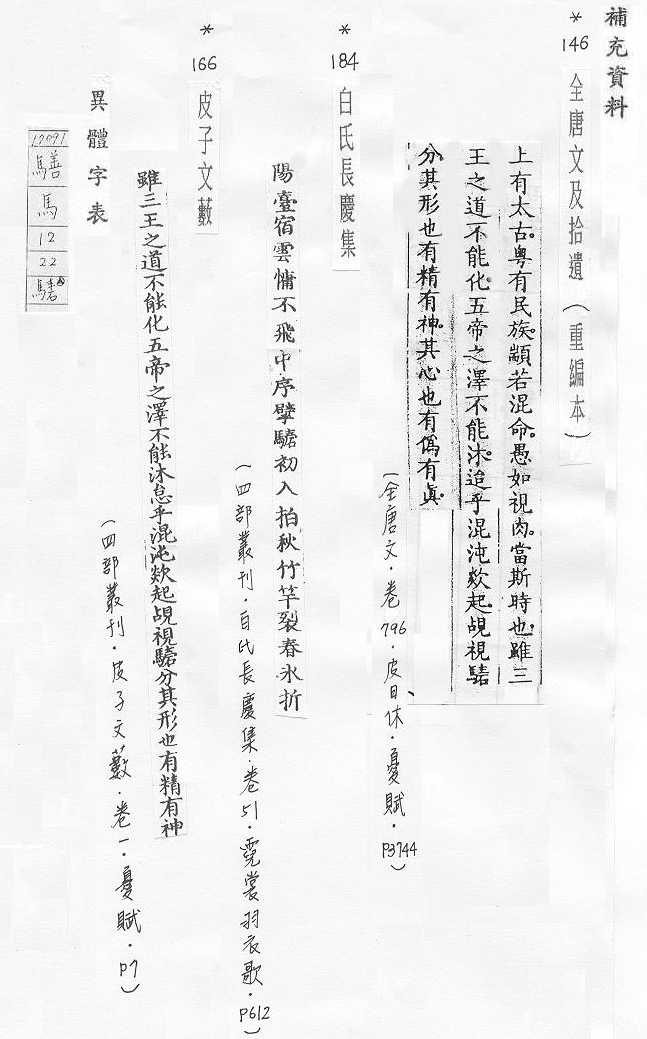 補充資料
*
146
全唐文及拾遺（重編本）
上有太古。粤有民族。顓若混命。愚如視肉。當斯時也。雖三
王之道不能化五帝之澤不能沐。迨乎混沌欻起。覘視騞
分。其形也有精有神。其心也有僞有眞。
（全唐文．卷796．皮日休．憂賦．P3744）
*
184
白氏長慶集
陽臺宿雲慵不飛中序擘騞初入拍秋竹竿裂春氷折
（四部叢刊．白氏長慶集．卷51．霓裳羽衣歌．P612）
*
166
皮子文藪
雖三王之道不能化五帝之澤不能沐怠乎混沌欻起覘視騞分其形也有精有神
（四部叢刊．皮子文藪．卷一．憂賦．P7）
異體字表
馬
12
22